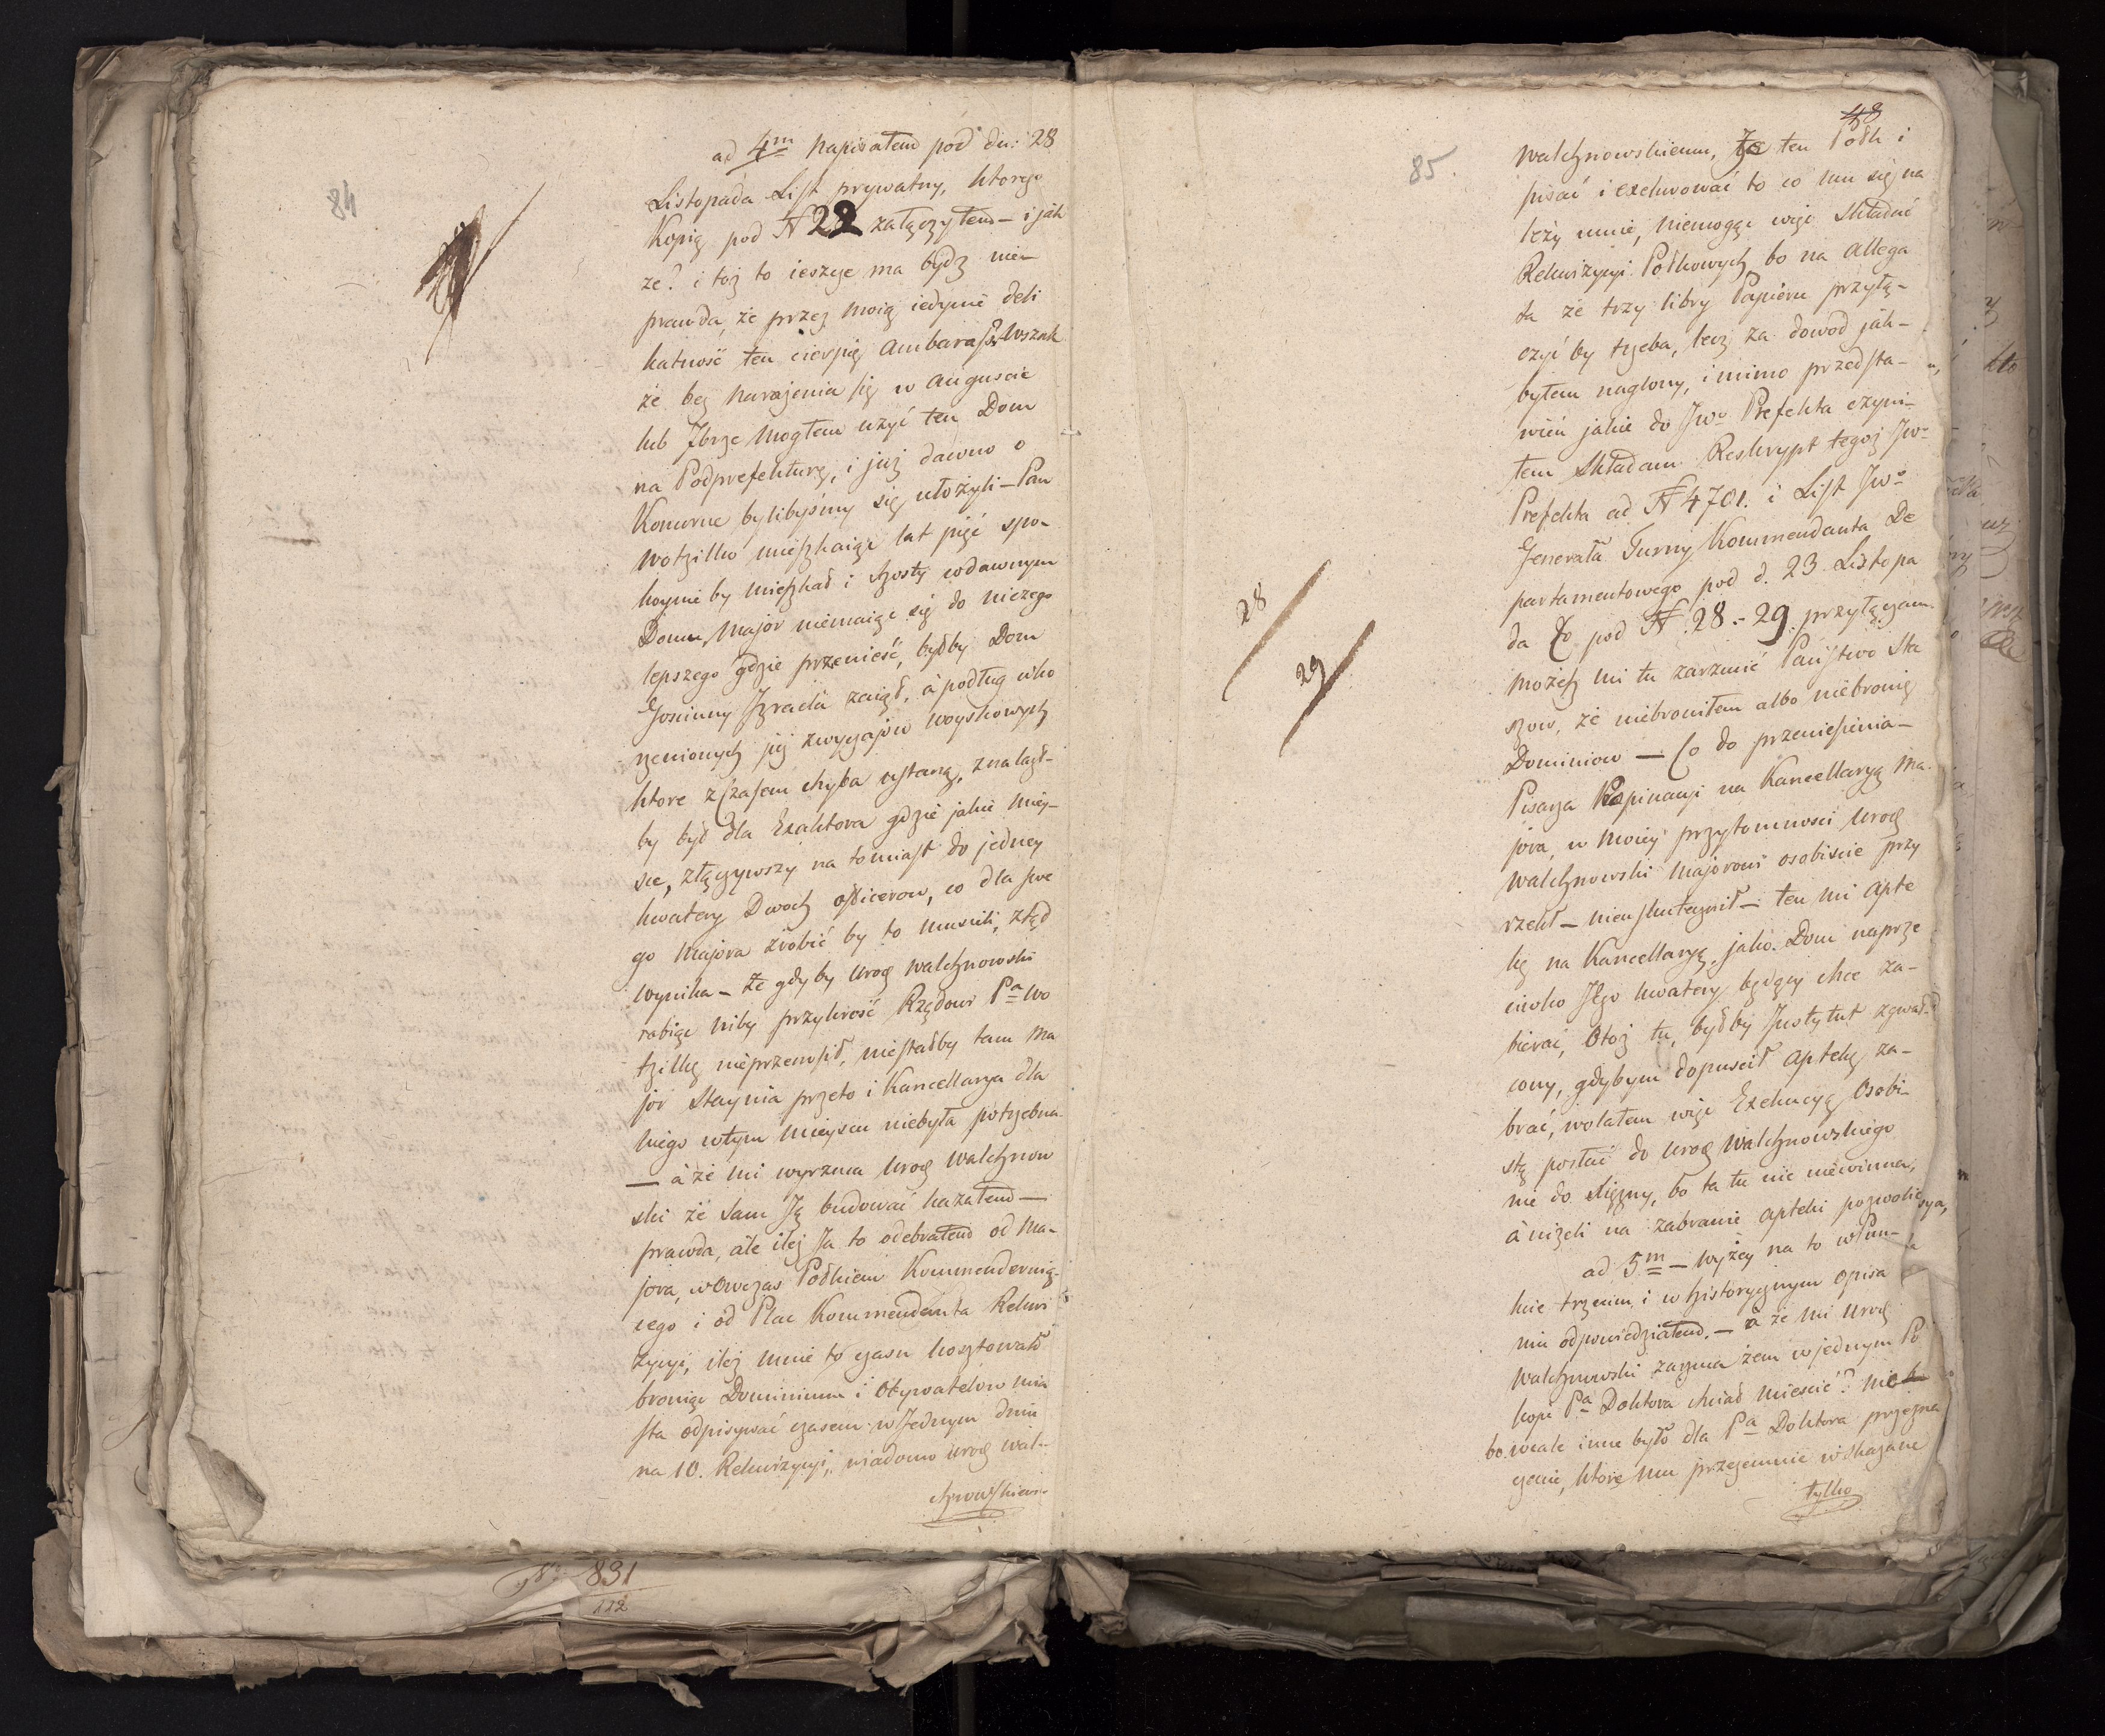 84
ad 4m Napisałem pod dn: 28
Listopada List prywatny, ktorego
Kopię pod N 22 załączyłem – i jak
że? i toż to ieszcze ma bydź nie
prawda, że przez moią iedynie deli
katność ten cierpię Ambaras, Wszak
że bez narażenia się w Auguscie
lub 7brze mogłem użyć ten Dom
na Podprefekturę, i już dawno o
Komorne bylibyśmy się ułożyli – Pan
Wotzilko mieszkaiąc lat pięć spo-
koynie by mieszkał i szosty wdawnym
Domu, Major niemaiąc się do niczego
lepszego gdzie przenieść, byłby Dom
Goscinny Izraela zaiął, a podług wko
rzenionych już zwyczajów woyskowych
ktore z Czasem chyba ustaną, znalazł-
by był dla Exaktora gdzie jakie miey-
sce, złączywszy na tomiast do jedney
kwatery Dwoch officerow, co dla swe
go Majora zrobić by to musieli, ztąd
wynika – że gdyby Urod Walchnowski
robiąc niby przykrość Rządowi Pa Wo
tzilkę nieprzenosił, niestałby tam Ma
jor Staynia przeto i Kancellarya dla
niego wtym mieyscu niebyła potrzebna
— a że mi wyrzuca Urod Walchnow
ski że sam Ją budować kazałem —
prawda, ale ileż Ja to odebrałem od Ma-
jora, wowczas Połkiem Kommenderuią-
cego i od Plac Kommendanta Rekwi
zycyi, ileż mnie to czasu kosztowało
broniąc Dominium i Obywatelow mia
sta odpisywać czasem w Jednym dniu
na 10. Rekwizycyi, wiadomo Urod Wal-
chnowskiem
831
112
85.
48
Walchnowskiemu, że ten Połk i
pisać i exekwować to co mu się na
leży umie, niemogąc więc składać
Rekwizycyi Połkowych, bo na Allega
ta że trzy libry Papieru przyłą-
czyć by trzeba, lecz za dowod jak-
byłem naglony, i mimo przedsta-
wień jakie do Jwo Prefekta czyni-
łem składam Reskrypt tegoż Jwo
Prefekta ad N 4701. i List Jwo
Generała Turny Kommendanta De
partamentowego pod d. 23 Listopa
da Co pod N 28.-29. przyłączam.
28
29
możesz mi tu zarzucić Państwo Sta
szow, że niebroniłem albo niebronię
Dominiow — Co do przeniesienia
Pisarza Propinacyi na Kancellaryą Ma-
jora, w moiey przytomnosci Urod
Walchnowski Majorowi osobiscie przy
rzekł – nieuskutecznił – ten mi Apte
kę na Kancellaryę, jako Dom naprze
ciwko Jego kwatery będący chce za-
bierać, Otoż tu, byłby Instytut zgwał-
cony, gdybym dopuscił Aptekę za-
brać, wolałem więc Exekucyą Osobi-
stą posłać do Urod Walchnowskiego
nie do Xiężny, bo ta tu nic niewinna,
a niżeli na zabranie Apteki pozwolić
ad 5m – wyżey na to w Pun-
kcie trzecim i w historycznym opisa
niu odpowiedziałem. – a że mi Urod
Walchnowski zarzuca żem w jednym Po
koju Pa Doktora chciał mieścić? nie
bo wcale inne było dla Pa Doktora przezna
czenie, ktore mu przezemnie wskazane
tylko